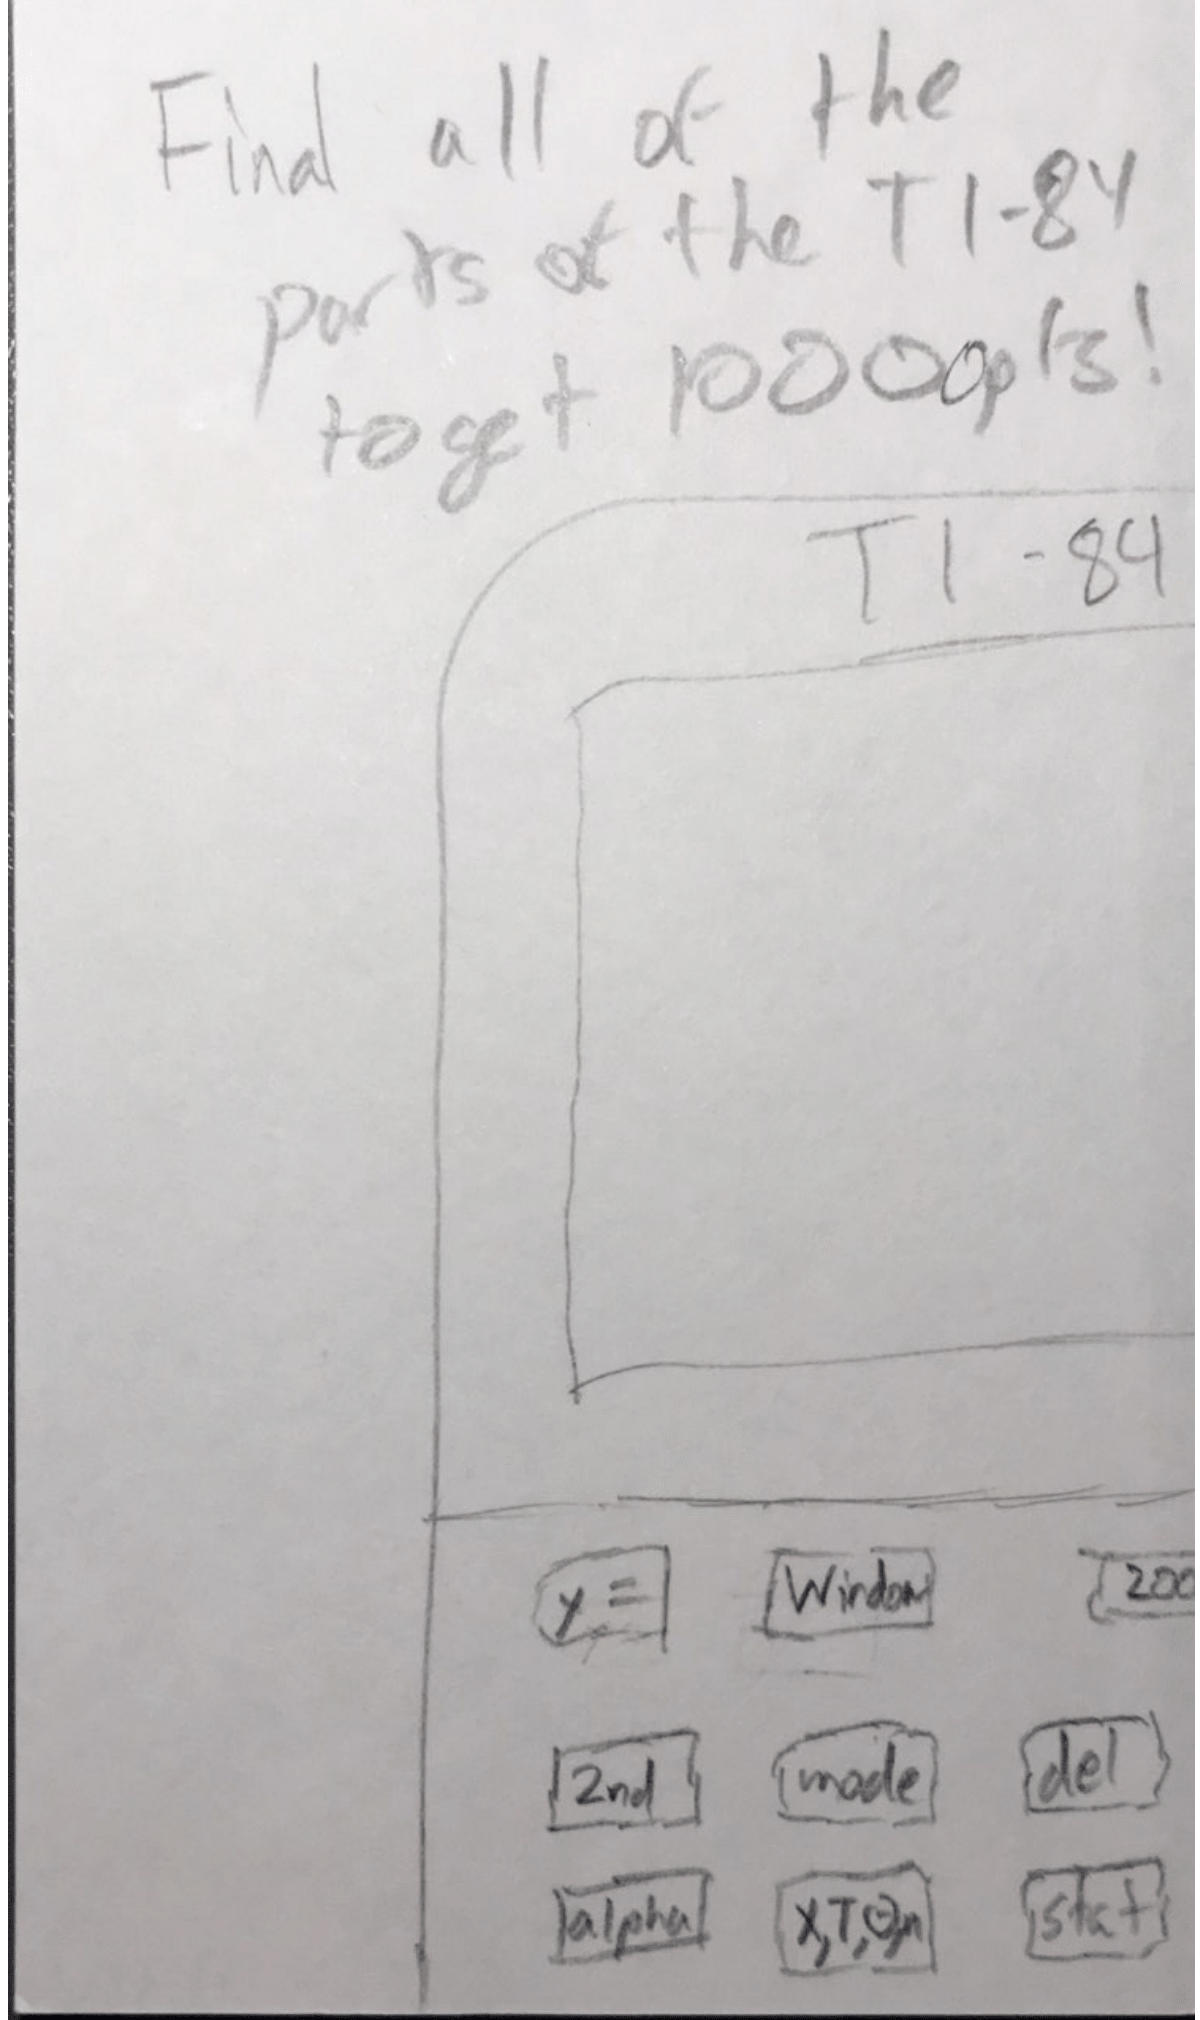 Final all of the
parts of the TI-84
to get 10000pts!
TI-84
y= Window zoo
2nd mode del
alpha X,T,θ,n stat